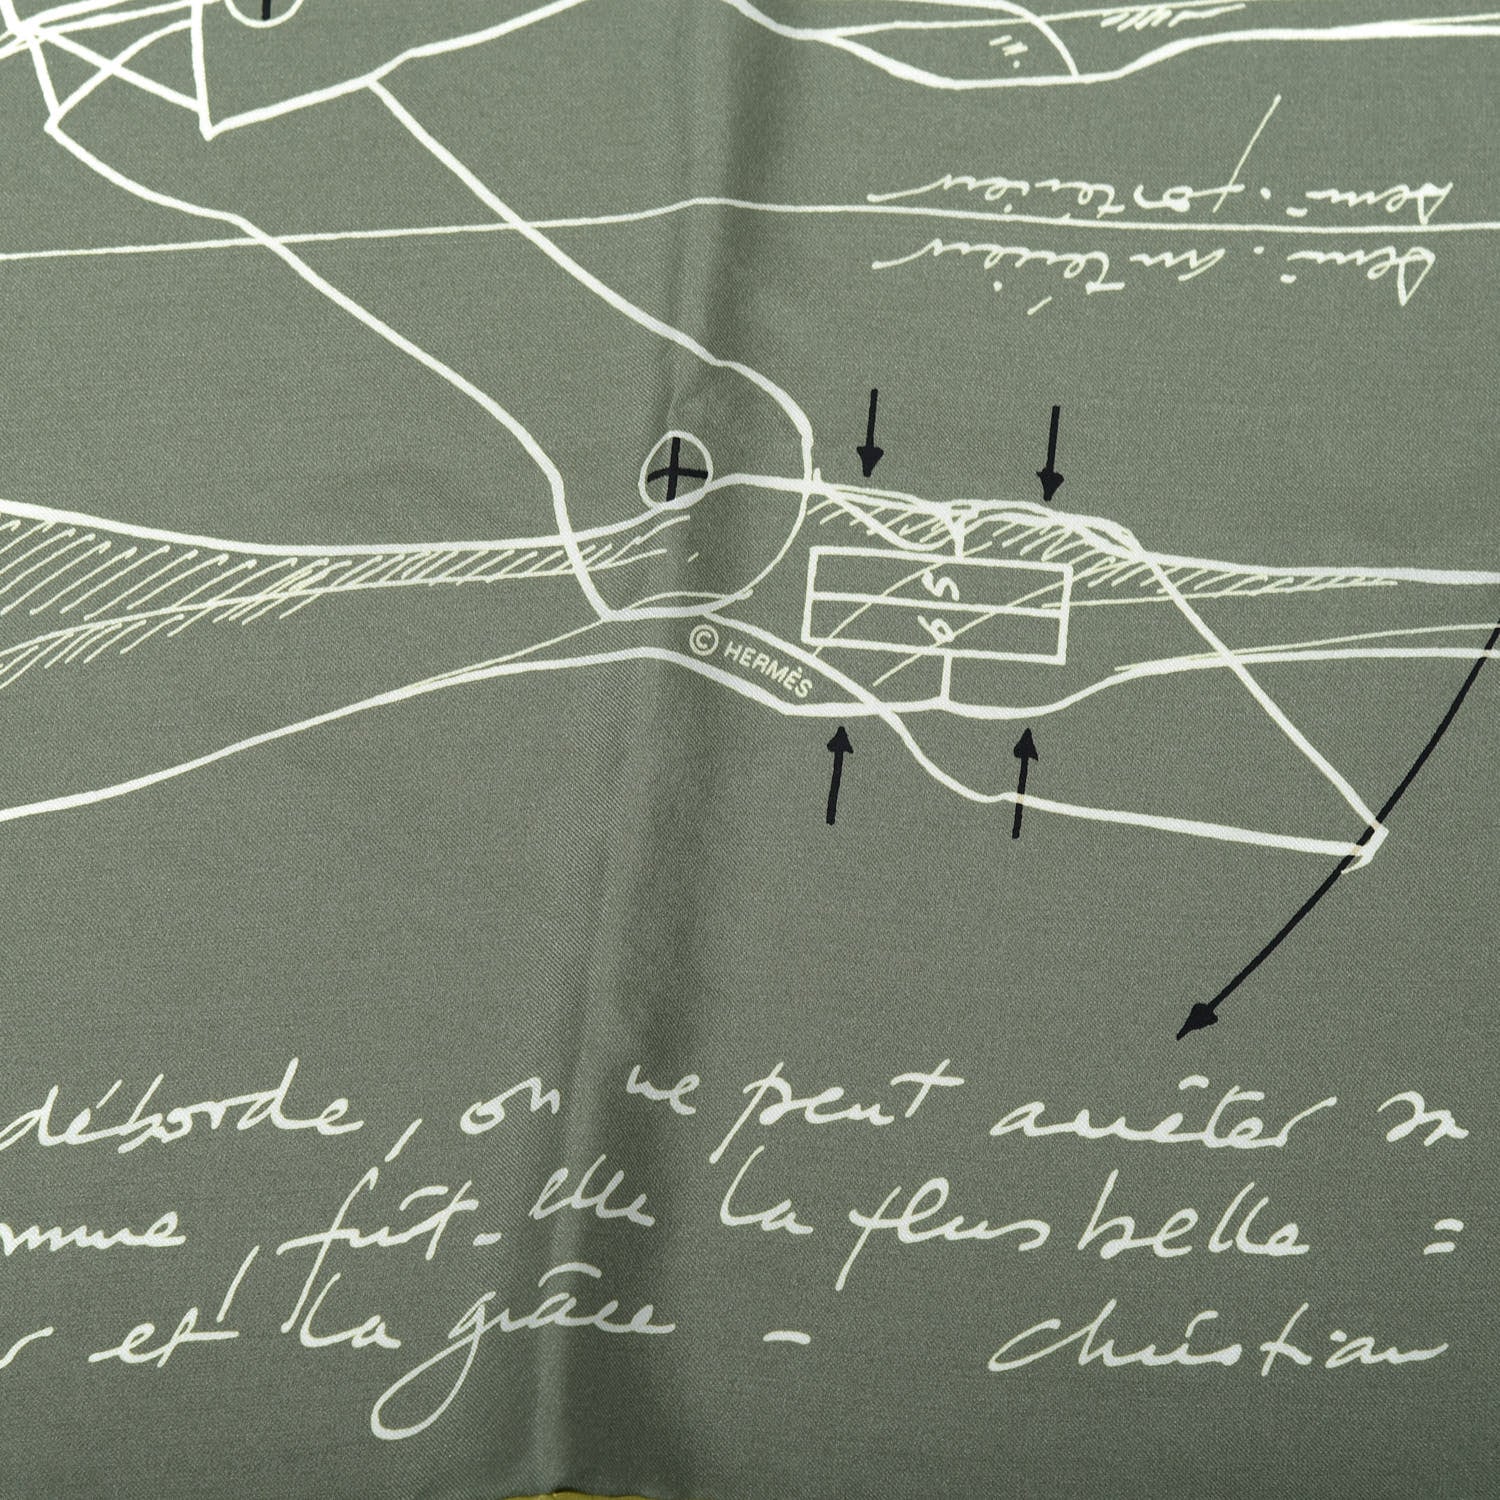 demi-postérieur
demi-antérieur
5
9
© HERMÈS
déborde, on ne peut arrêter
mme, fût-elle la plus belle =
et la grâce - Christian